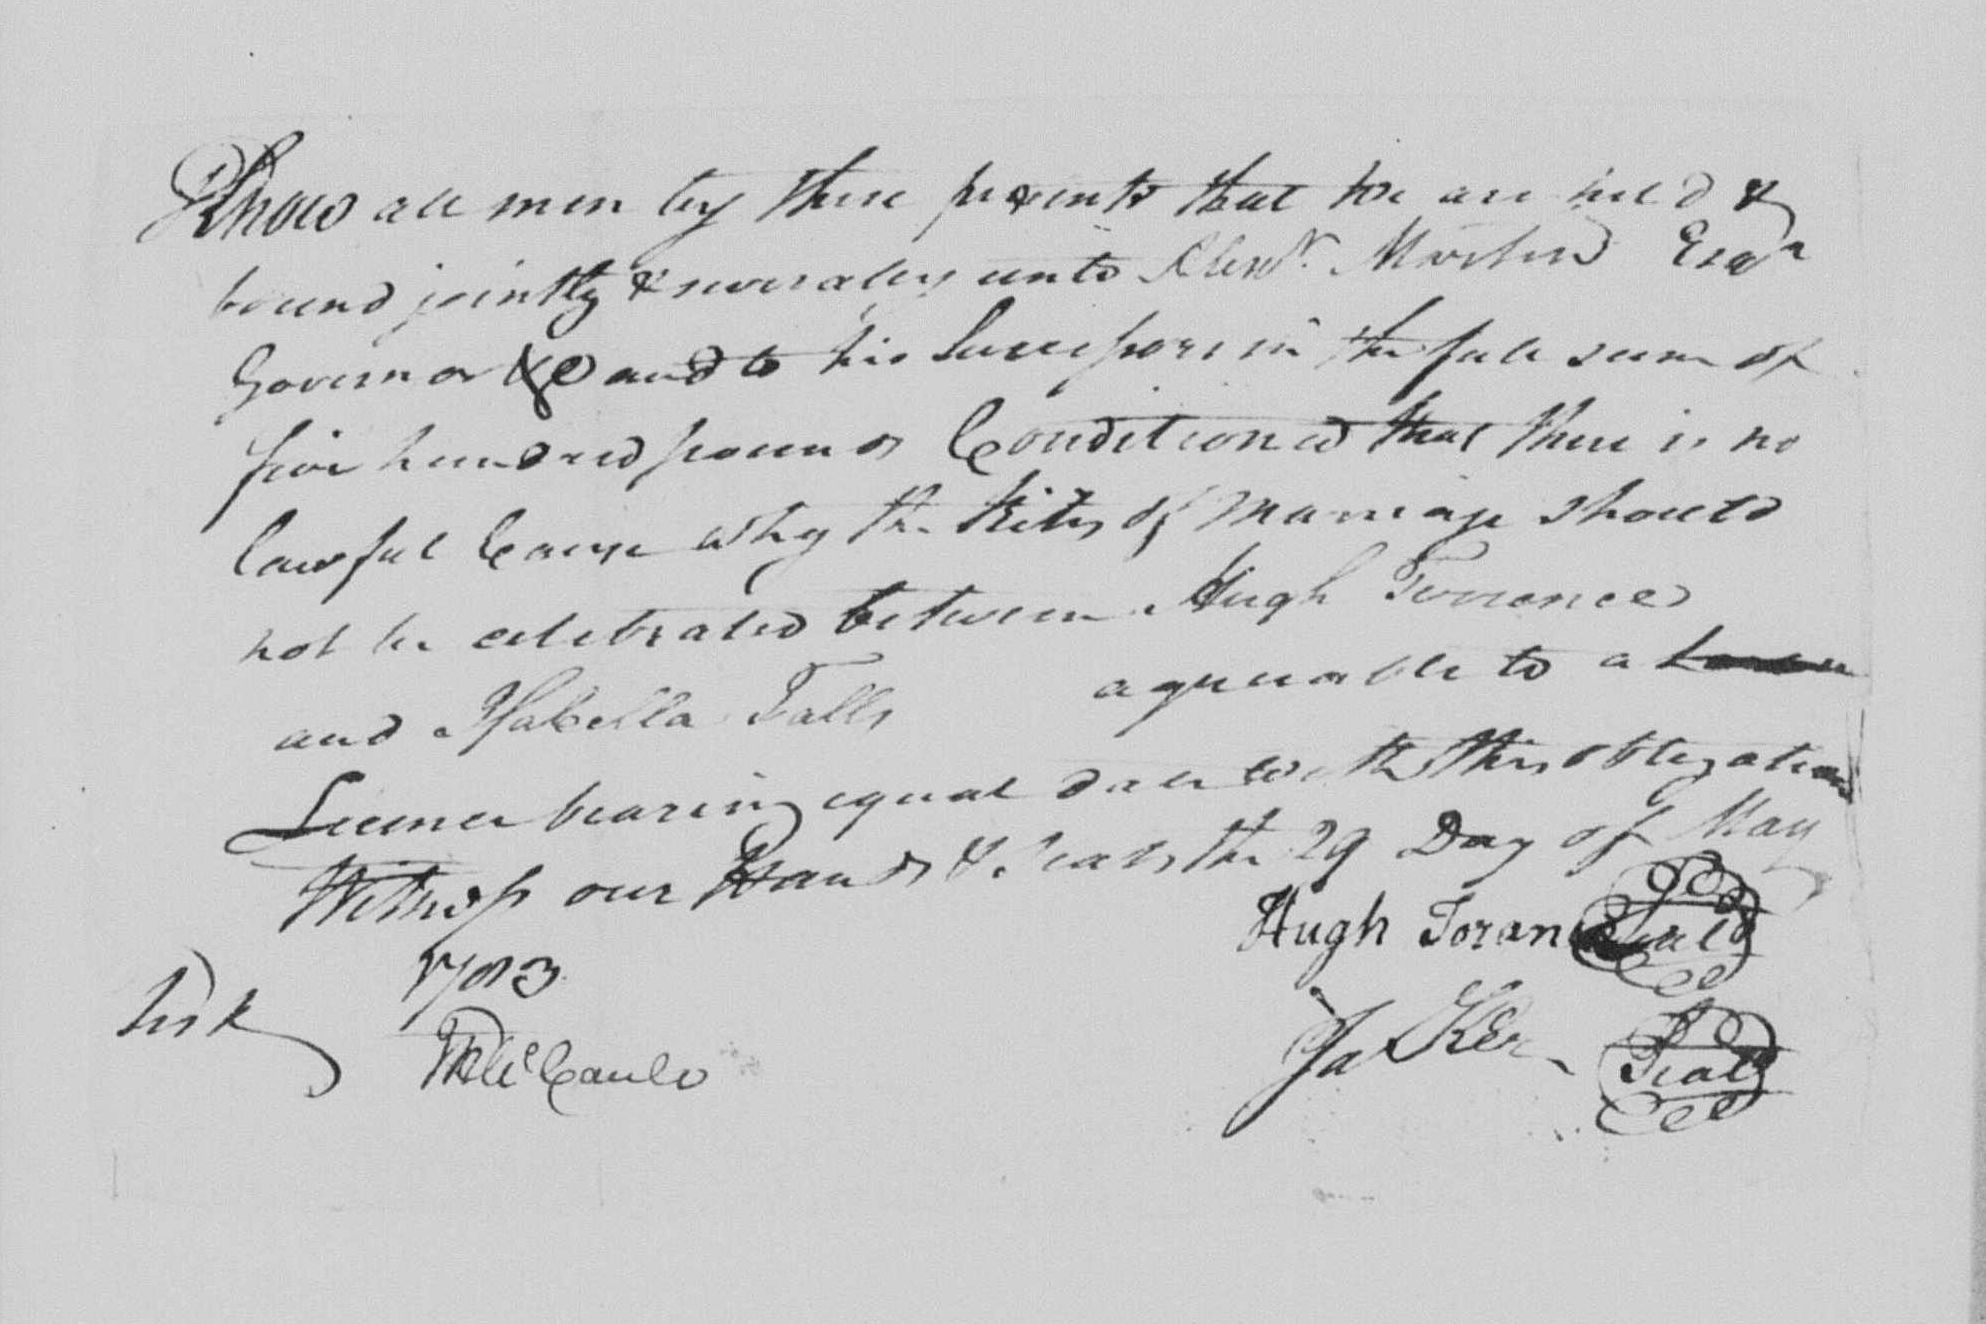 Know all men by these presents that we are held &
bound jointly & severally unto Alexr. Martin Esqr
Governor &c and to his Successors in the full sum of
five hundred pounds Conditioned that there is no
lawful Cause why the Rites of Marriage should
not be celebrated between Hugh Torrance
and Isabella Falls agreeable to a
Licence bearing equal date with this obligation
Witness our Hands & Seals the 29 Day of May
1783 Hugh Toran Seal
Test
Ja Ker Seal